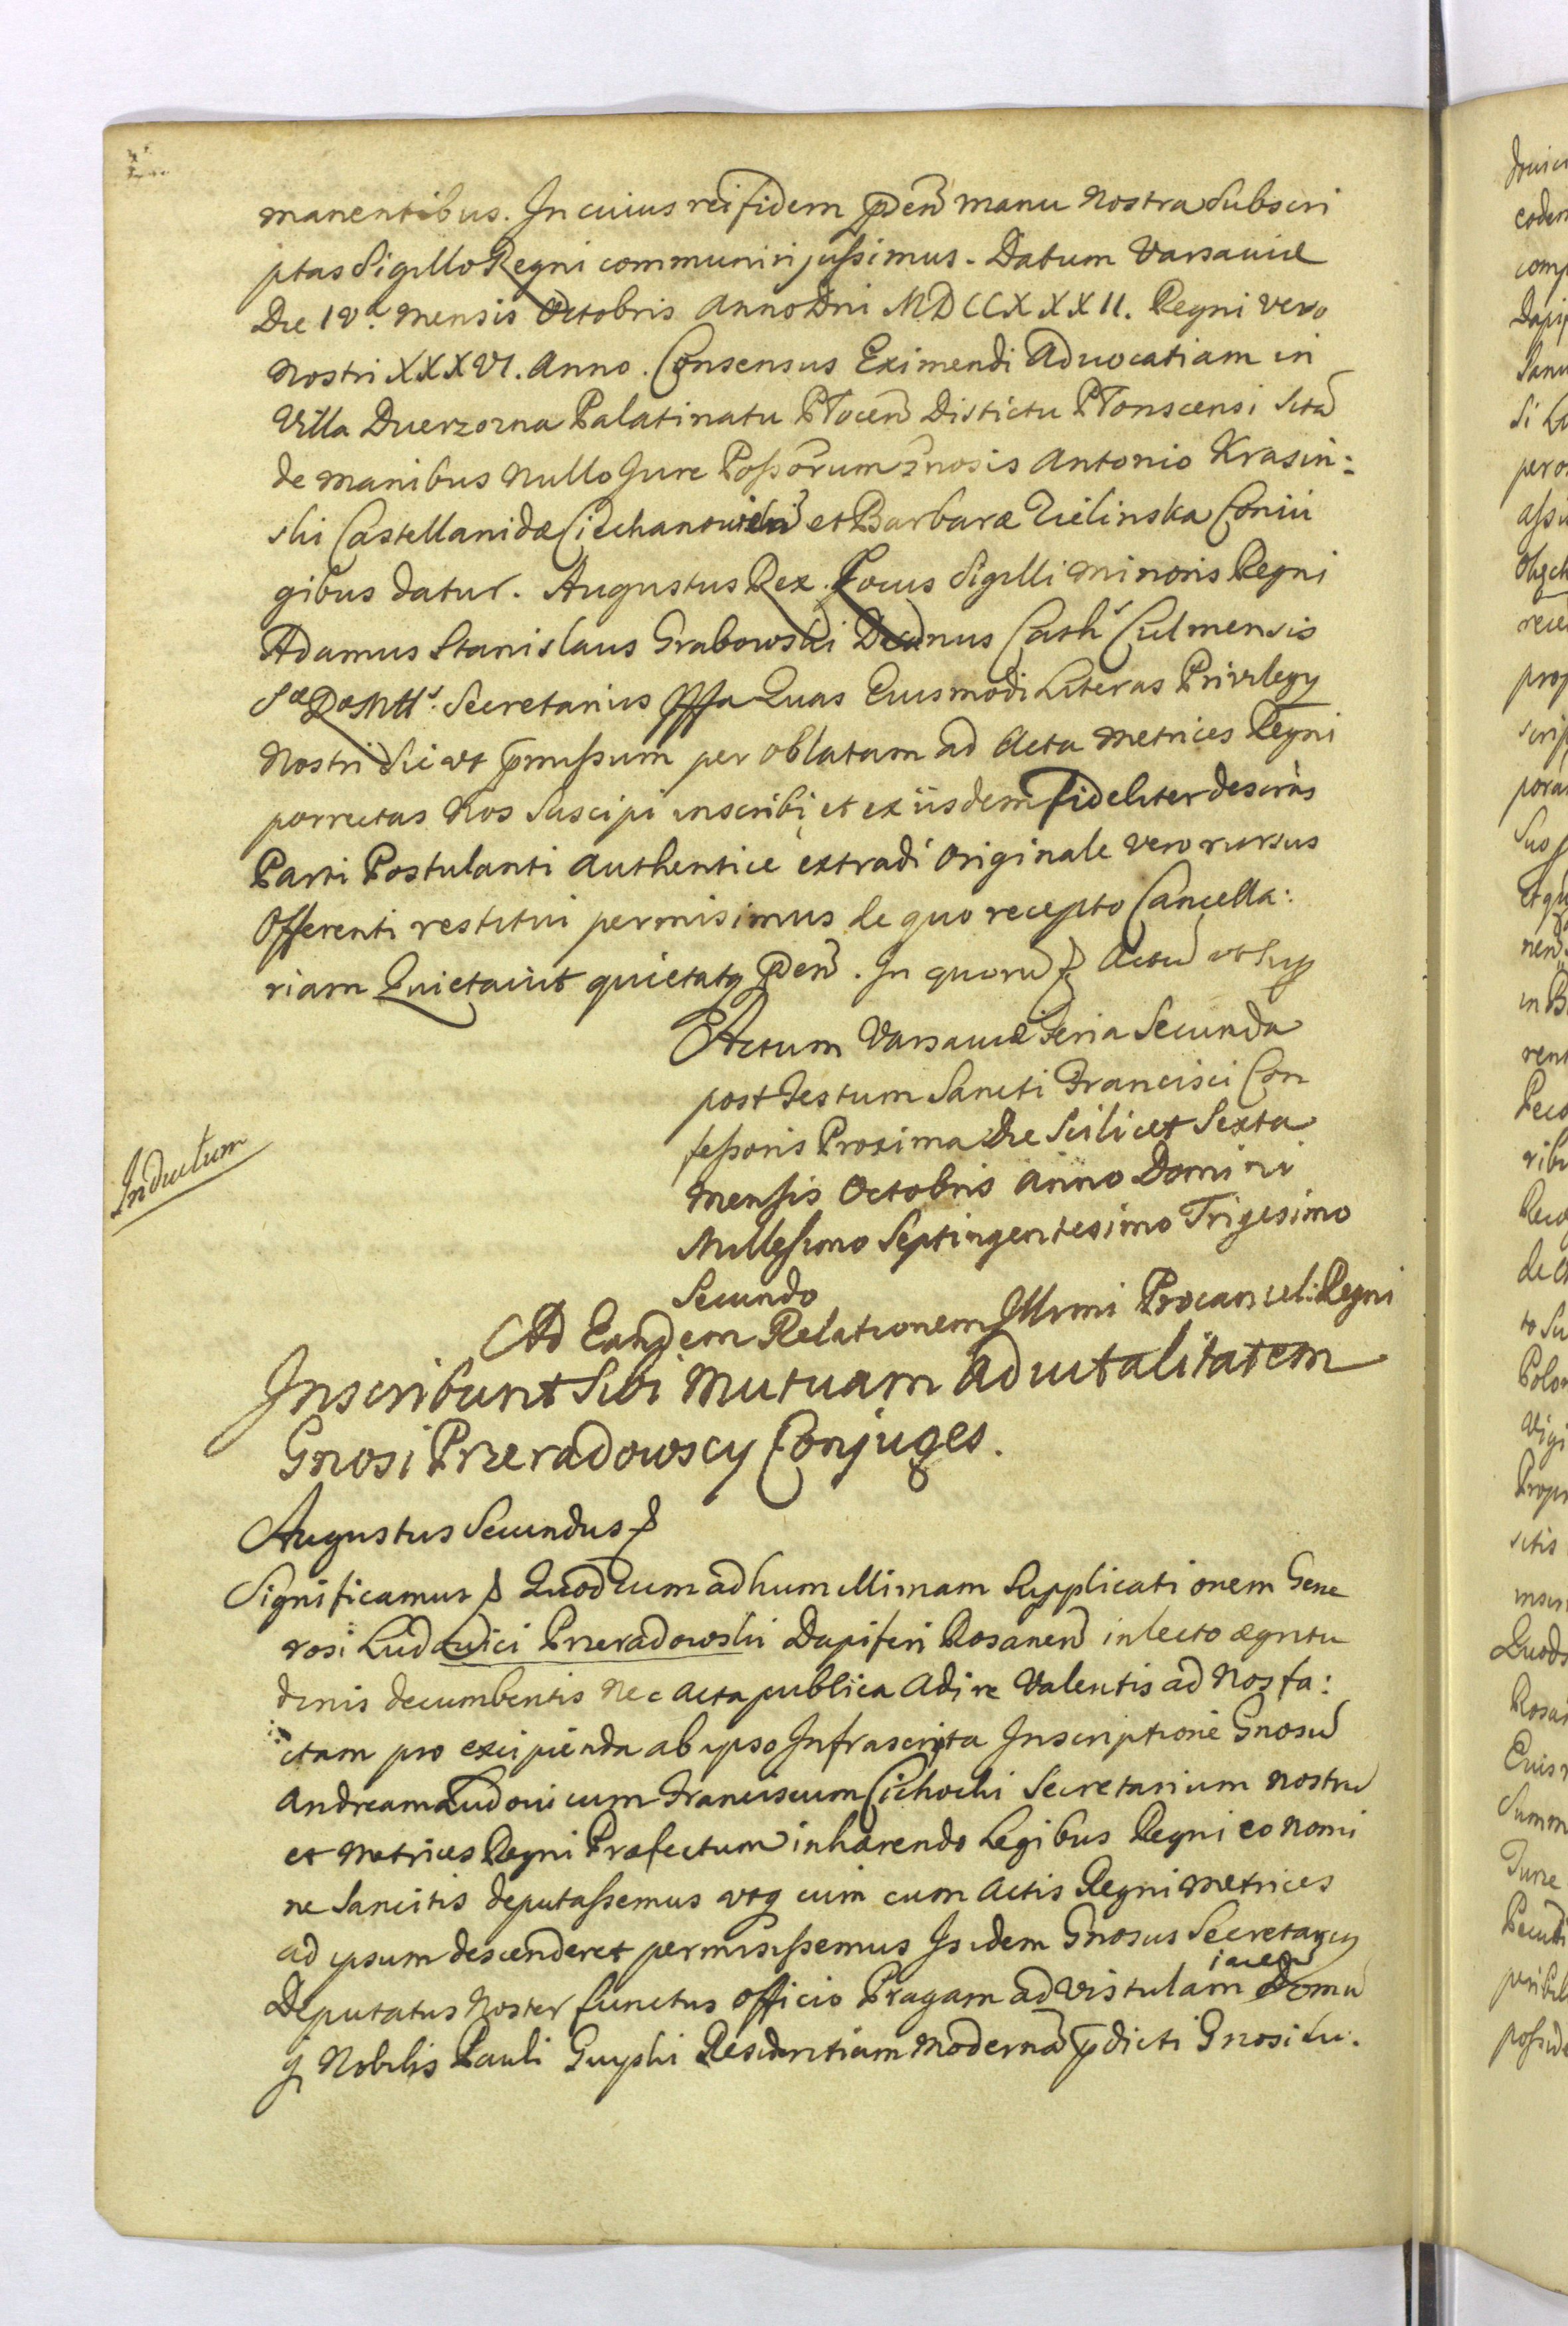 manentibus. In cuius rei fidem pden manu Nostra Subscri
ptas Sigillo Regni communiri jussimus. Datum Varsaviæ
Die IVa. Mensis Octobris Anno Dni MDCCXXXII. Regni vero
Nostri XXXVI. Anno. Consensus Eximendi Advocatiam in
Villa Dwerzorna Palatinatu Plocen Distictu Plonscensi Sita
de manibus nullo Jure Possorum Gnosis Antonio Krasin:
ski Castellanidæ Ciechanovien et Barbaræ Zielinska Coniu
gibus datur. Augustus Rex. Locus Sigilli minoris Regni
Adamus Stanislaus Grabowski Decanus Cathl Culmensis
Sæ Ræ Mttis. Secretarius Quas Eiusmodi Literas Privilegy
Nostri Sic ut pmissum per oblatam ad Acta Metrices Regni
porrectas Nos Suscipi inscribi et ex iisdem fideliter descriptas
Parti Postulanti Authentice extradi Originale vero rursus
Offerenti restitui permisimus de quo recepto Cancella:
riam Quietavit quietatq pden. In quorum Actum ut Supra
Actum Varsaviæ Feria Secunda
post Festum Sancti Francisci Con
fessoris Proxima Die Scilicet Sexta
Mensis Octobris Anno Domini
Millesimo Septingentesimo Trigesimo
Secundo
Indultum
Ad Eandem Relationem Illrmi Procancel: Regni
Inscribunt Sibi Mutuam Advitalitatem
Gnosi Przeradowscy Conjuges.
Augustus Secundus
Significamus Quod cum ad humillimam Supplicationem Gene
rosi Ludovici Przeradowski Dapiferi Rosanen in lecto ægritu
dinis decumbentis Nec acta publica Adire Valentis ad Nos fa:
ctam pro excipienda ab ipso Infrascripta Inscriptione Gnosum
Andream Ludovicum Franciscum Cichocki Secretarium Nostrum
et Metrices Regni Præfectum inhærendo Legibus Regni eo Nomi
ne Sancitis deputassemus utq cum cum Actis Regni Metrices
ad ipsum descenderet permisissemus Isidem Gnosus Secretarius
Deputatus Noster functus officio Pragam ad Vistulam iacen Domum
q Nobilis Pauli Guyski Residentiam Modernam pdicti Gnosi Lu: